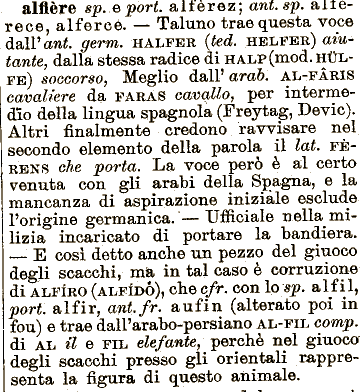 alfière sp. e port. alfèrez; ant. sp. alfe-
rece, alferce. — Taluno trae questa voce
dall'ant. germ. HALFER (ted. HELFER) aiu-
tante, dalla stessa radice di HALP (mod. HÜL-
FE) soccorso, Meglio dall' arab. AL-FÂRIS
cavaliere da FARAS cavallo, per interme-
dio della lingua spagnola (Freytag, Devic).
Altri finalmente credono ravvisare nel
secondo elemento della parola il lat. FÈ-
RENS che porta. La voce però è al certo
venuta con gli arabi della Spagna, e la
mancanza di aspirazione iniziale esclude
l'origine germanica. — Ufficiale nella mi-
lizia incaricato di portare la bandiera.
— E così detto anche un pezzo del giuoco
degli scacchi, ma in tal caso è corruzione
di ALFÍRO (ALFÍDO), che cfr. con lo sp. alfil,
port. alfir, ant. fr. aufin (alterato poi in
fou) e trae dall'arabo-persiano AL-FIL comp.
di AL il e FIL elefante, perchè nel giuoco
degli scacchi presso gli orientali rappre-
senta la figura di questo animale.